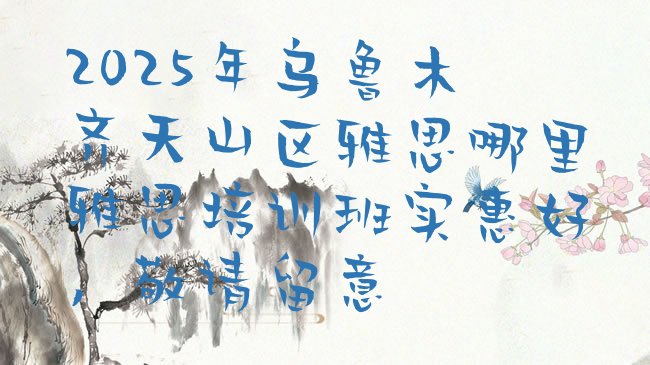 2025年乌鲁木
齐天山区雅思哪里
雅思培训班实惠好
，敬请留意